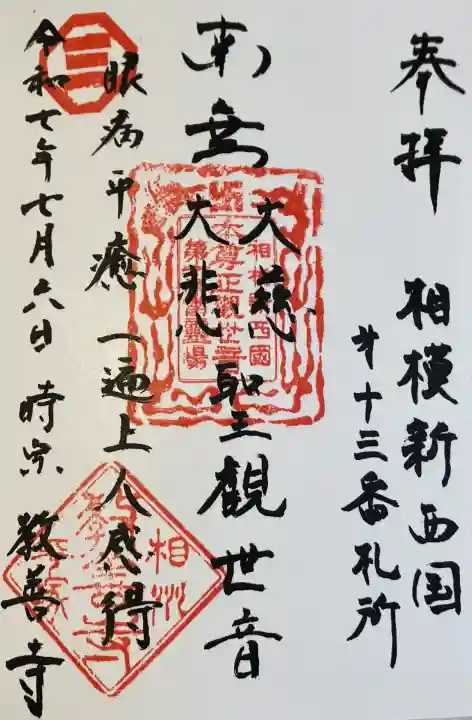 奉拝 相模新西国
才十三番札所
南無大慈大悲聖觀世音
眼病平癒一遍上人感得
令和七年七月六日 時宗 教善寺
相模新西國
本尊正觀世音
相州